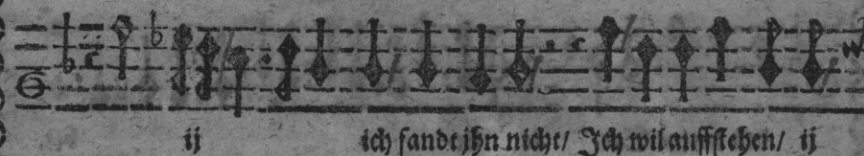 ij ich fandt jhn nicht/ Jch wil auffstehen/ ij